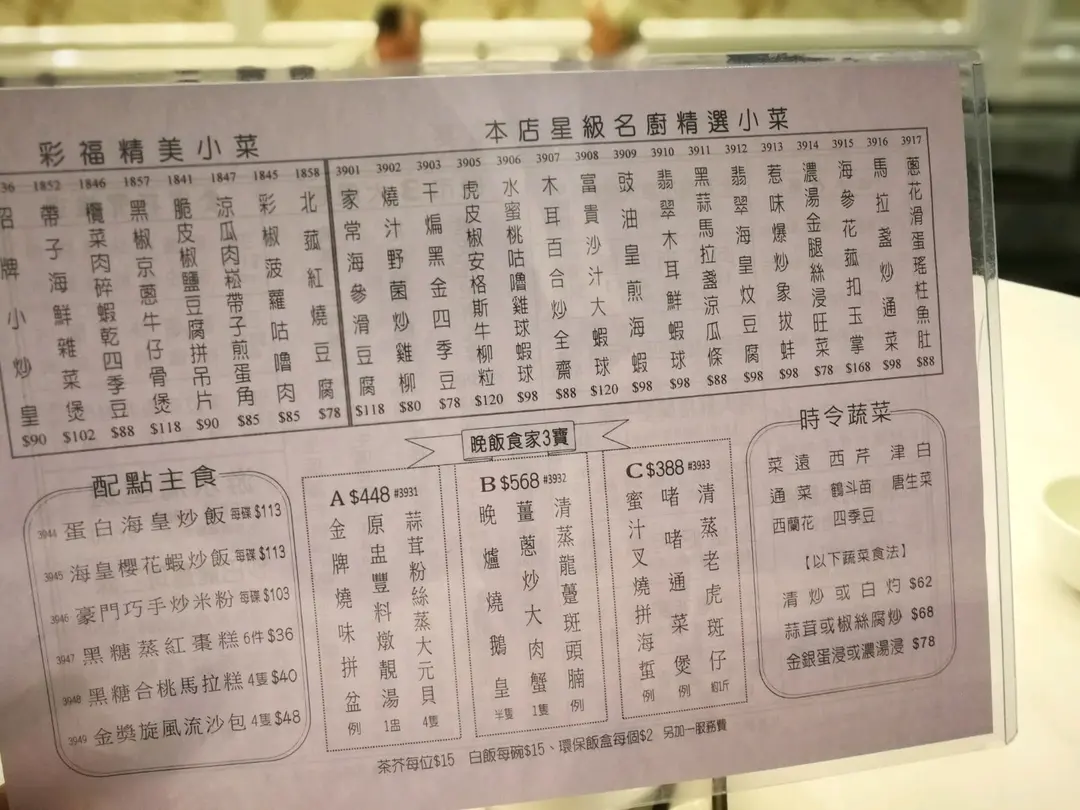 彩福精美小菜
36 招牌小炒皇 $90
1852 帶子海鮮雜菜煲 $102
1846 欖菜肉碎蝦乾四季豆 $88
1857 黑椒京蔥牛仔骨煲 $118
1841 脆皮椒鹽豆腐拼吊片 $90
1847 涼瓜肉崧帶子煎蛋角 $85
1845 彩椒菠蘿咕嚕肉 $85
1858 北菰紅燒豆腐 $78
本店星級名廚精選小菜
3901 家常海參滑豆腐 $118
3902 燒汁野菌炒雞柳 $80
3903 干煸黑金四季豆 $78
3905 虎皮椒安格斯牛柳粒 $120
3906 水蜜桃咕嚕雞球蝦球 $98
3907 木耳百合炒全齋 $88
3908 富貴沙汁大蝦球 $120
3909 豉油皇煎海蝦 $98
3910 翡翠木耳鮮蝦球 $98
3911 黑蒜馬拉盞涼瓜條 $88
3912 翡翠海皇炆豆腐 $98
3913 惹味爆炒象拔蚌 $98
3914 濃湯金腿絲浸旺菜 $78
3915 海參花菰扣玉掌 $168
3916 馬拉盞炒通菜 $98
3917 蔥花滑蛋瑤柱魚肚 $88
配點主食
3944 蛋白海皇炒飯 每碟 $113
3945 海皇櫻花蝦炒飯 每碟 $113
3946 豪門巧手炒米粉 每碟 $103
3947 黑糖蒸紅棗糕 6件 $36
3948 黑糖合桃馬拉糕 4隻 $40
3949 金獎旋風流沙包 4隻 $48
晚飯食家3寶
A $448 #3931
蒜茸粉絲蒸大元貝 4隻
原盅豐料燉靚湯 1盅
金牌燒味拼盆 例
B $568 #3932
清蒸龍躉斑頭腩 例
薑蔥炒大肉蟹 1隻
晚爐燒鵝皇 半隻
C $388 #3933
清蒸老虎斑仔 約1斤
啫啫通菜煲 例
蜜汁叉燒拼海蜇 例
時令蔬菜
菜遠 西芹 津白
通菜 鶴斗苗 唐生菜
西蘭花 四季豆
【以下蔬菜食法】
清炒或白灼 $62
蒜茸或椒絲腐炒 $68
金銀蛋浸或濃湯浸 $78
茶芥每位$15 白飯每碗$15、環保飯盒每個$2 另加一服務費